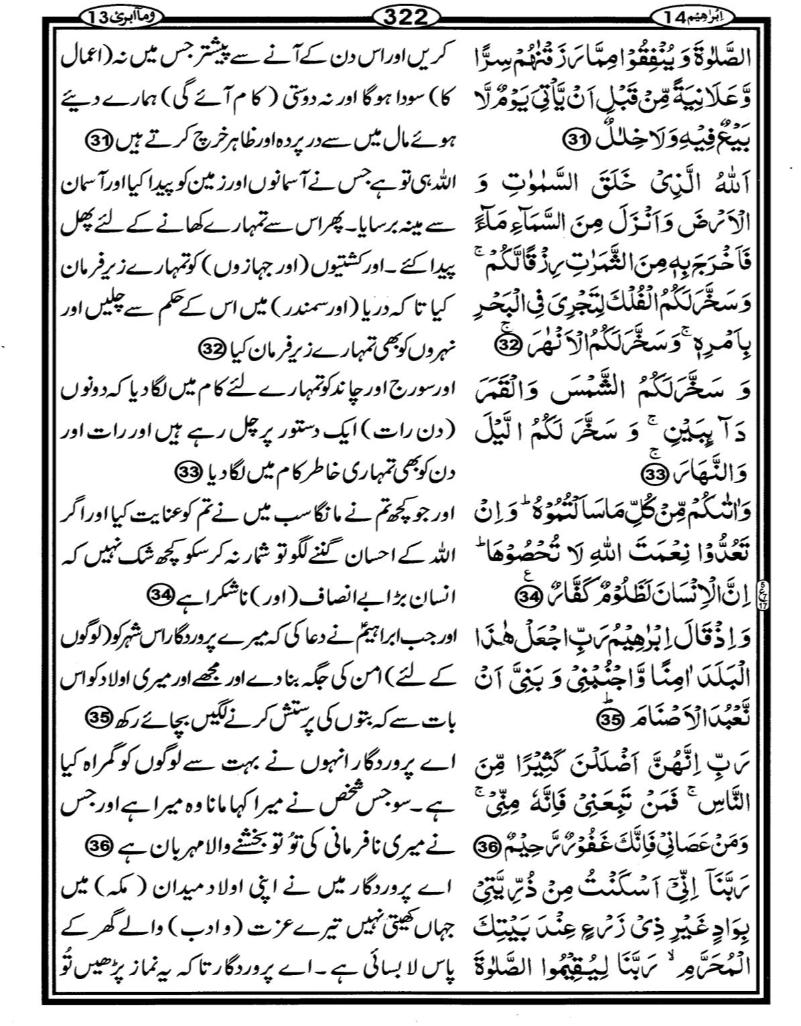 اِبْرٰهِيْم 14
322
وَمَآ اُبَرِّئُ 13
الصَّلٰوةَ وَ يُنْفِقُوْا مِمَّا رَزَقْنٰهُمْ سِرًّا
وَّ عَلَانِيَةً مِّنْ قَبْلِ اَنْ يَّاْتِيَ يَوْمٌ لَّا
بَيْعٌ فِيْهِ وَ لَا خِلٰلٌ 31
اَللّٰهُ الَّذِيْ خَلَقَ السَّمٰوٰتِ وَ
الْاَرْضَ وَ اَنْزَلَ مِنَ السَّمَآءِ مَآءً
فَاَخْرَجَ بِهٖ مِنَ الثَّمَرٰتِ رِزْقًا لَّكُمْ ۚ
وَ سَخَّرَ لَكُمُ الْفُلْكَ لِتَجْرِيَ فِي الْبَحْرِ
بِاَمْرِهٖ ۚ وَ سَخَّرَ لَكُمُ الْاَنْهٰرَ ۚ 32
وَ سَخَّرَ لَكُمُ الشَّمْسَ وَ الْقَمَرَ
دَآىِٕبَيْنِ ۚ وَ سَخَّرَ لَكُمُ الَّيْلَ
وَ النَّهَارَ ۚ 33
وَ اٰتٰىكُمْ مِّنْ كُلِّ مَا سَاَلْتُمُوْهُ ؕ وَ اِنْ
تَعُدُّوْا نِعْمَتَ اللّٰهِ لَا تُحْصُوْهَا ؕ
اِنَّ الْاِنْسَانَ لَظَلُوْمٌ كَفَّارٌ ۧ 34
وَ اِذْ قَالَ اِبْرٰهِيْمُ رَبِّ اجْعَلْ هٰذَا
الْبَلَدَ اٰمِنًا وَّ اجْنُبْنِيْ وَ بَنِيَّ اَنْ
نَّعْبُدَ الْاَصْنَامَ ؕ 35
رَبِّ اِنَّهُنَّ اَضْلَلْنَ كَثِيْرًا مِّنَ
النَّاسِ ۚ فَمَنْ تَبِعَنِيْ فَاِنَّهٗ مِنِّيْ ۚ
وَ مَنْ عَصَانِيْ فَاِنَّكَ غَفُوْرٌ رَّحِيْمٌ 36
رَبَّنَاۤ اِنِّيْۤ اَسْكَنْتُ مِنْ ذُرِّيَّتِيْ
بِوَادٍ غَيْرِ ذِيْ زَرْعٍ عِنْدَ بَيْتِكَ
الْمُحَرَّمِ ۙ رَبَّنَا لِيُقِيْمُوا الصَّلٰوةَ
کریں اور اس دن کے آنے سے پیشتر جس میں نہ (اعمال
کا) سودا ہو گا اور نہ دوستی (کام آئے گی) ہمارے دیئے
ہوئے مال میں سے در پردہ اور ظاہر خرچ کرتے ہیں 31
اللہ ہی تو ہے جس نے آسمانوں اور زمین کو پیدا کیا اور آسمان
سے مینہ برسایا۔ پھر اس سے تمہارے کھانے کے لئے پھل
پیدا کئے۔ اور کشتیوں (اور جہازوں) کو تمہارے زیرِ فرمان
کیا تا کہ دریا (اور سمندر) میں اس کے حکم سے چلیں اور
نہروں کو بھی تمہارے زیرِ فرمان کیا 32
اور سورج اور چاند کو تمہارے لئے کام میں لگا دیا کہ دونوں
(دن رات) ایک دستور پر چل رہے ہیں اور رات اور
دن کو بھی تمہاری خاطر کام میں لگا دیا 33
اور جو کچھ تم نے مانگا سب میں نے تم کو عنایت کیا اور اگر
اللہ کے احسان گننے لگو تو شمار نہ کر سکو کچھ شک نہیں کہ
انسان بڑا بے انصاف (اور) ناشکرا ہے 34
اور جب ابراہیمؑ نے دعا کی کہ میرے پروردگار اس شہر کو (لوگوں
کے لئے) امن کی جگہ بنا دے اور مجھے اور میری اولاد کو اس
بات سے کہ بتوں کی پرستش کرنے لگیں بچائے رکھ 35
اے پروردگار انہوں نے بہت سے لوگوں کو گمراہ کیا
ہے۔ سو جس شخص نے میرا کہا مانا وہ میرا ہے اور جس
نے میری نافرمانی کی تو تُو بخشنے والا مہربان ہے 36
اے پروردگار میں نے اپنی اولاد میدان (مکہ) میں
جہاں کھیتی نہیں تیرے عزت (و ادب) والے گھر کے
پاس لا بسائی ہے۔ اے پروردگار تا کہ یہ نماز پڑھیں تُو